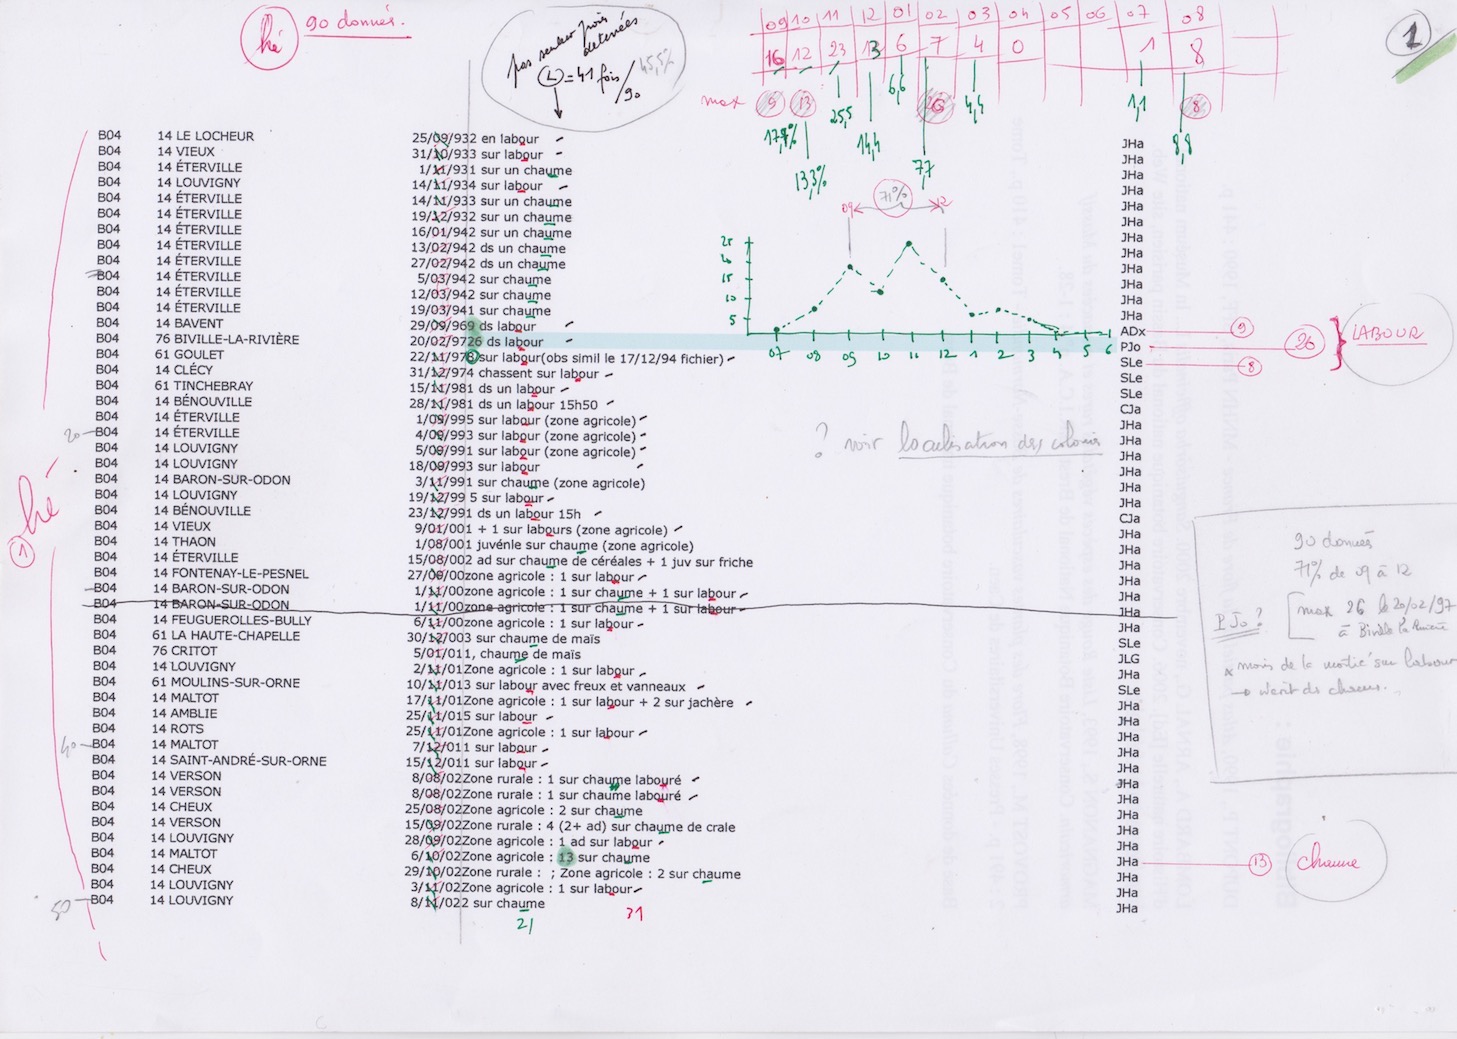 hé 90 donnés.
pas seules fois
détenées
L = 41 fois / 90 45,5%
09 10 11 12 01 02 03 04 05 06 07 08
16 12 23 13 6 7 4 0 1 8
max 9 13 26 8
17,7% 13,3% 25,5 14,4 6,6 7,7 4,4 1,1 8,8
1
B04 14 LE LOCHEUR 25/09/932 en labour
B04 14 VIEUX 31/10/933 sur labour JHa
B04 14 ÉTERVILLE 1/11/931 sur un chaume JHa
B04 14 LOUVIGNY 14/11/934 sur labour JHa
B04 14 ÉTERVILLE 14/11/933 sur un chaume JHa
B04 14 ÉTERVILLE 19/12/932 sur un chaume JHa
B04 14 ÉTERVILLE 16/01/942 sur un chaume JHa
B04 14 ÉTERVILLE 13/02/942 ds un chaume JHa
B04 14 ÉTERVILLE 27/02/942 ds un chaume JHa
B04 14 ÉTERVILLE 5/03/942 sur chaume JHa
B04 14 ÉTERVILLE 12/03/942 sur chaume JHa
B04 14 ÉTERVILLE 19/03/941 sur chaume JHa
B04 14 BAVENT 29/09/969 ds labour ADx 9
B04 76 BIVILLE-LA-RIVIÈRE 20/02/9726 ds labour PJo 26 LABOUR
B04 61 GOULET 22/11/978 sur labour(obs simil le 17/12/94 fichier) SLe 8
B04 14 CLÉCY 31/12/974 chassent sur labour SLe
B04 61 TINCHEBRAY 15/11/981 ds un labour SLe
B04 14 BÉNOUVILLE 28/11/981 ds un labour 15h50 CJa
B04 14 ÉTERVILLE 1/09/995 sur labour (zone agricole) JHa
20 B04 14 ÉTERVILLE 4/09/993 sur labour (zone agricole) JHa
B04 14 LOUVIGNY 5/09/991 sur labour (zone agricole) JHa
B04 14 LOUVIGNY 18/09/993 sur labour JHa
B04 14 BARON-SUR-ODON 3/11/991 sur chaume (zone agricole) JHa
B04 14 LOUVIGNY 19/12/99 5 sur labour JHa
B04 14 BÉNOUVILLE 23/12/991 ds un labour 15h CJa
B04 14 VIEUX 9/01/001 + 1 sur labours (zone agricole) JHa
B04 14 THAON 1/08/001 juvénle sur chaume (zone agricole) JHa
B04 14 ÉTERVILLE 15/08/002 ad sur chaume de céréales + 1 juv sur friche JHa
B04 14 FONTENAY-LE-PESNEL 27/06/00zone agricole : 1 sur labour JHa
B04 14 BARON-SUR-ODON 1/11/00zone agricole : 1 sur chaume + 1 sur labour JHa
B04 14 BARON-SUR-ODON 1/11/00zone agricole : 1 sur chaume + 1 sur labour JHa
B04 14 FEUGUEROLLES-BULLY 6/11/00zone agricole : 1 sur labour JHa
B04 61 LA HAUTE-CHAPELLE 30/12/003 sur chaume de maïs SLe
B04 76 CRITOT 5/01/011, chaume de maïs JLG
B04 14 LOUVIGNY 2/11/01Zone agricole : 1 sur labour JHa
B04 61 MOULINS-SUR-ORNE 10/11/013 sur labour avec freux et vanneaux SLe
B04 14 MALTOT 17/11/01Zone agricole : 1 sur labour + 2 sur jachère JHa
B04 14 AMBLIE 25/11/015 sur labour JHa
B04 14 ROTS 25/11/01Zone agricole : 1 sur labour JHa
40 B04 14 MALTOT 7/12/011 sur labour JHa
B04 14 SAINT-ANDRÉ-SUR-ORNE 15/12/011 sur labour JHa
B04 14 VERSON 8/08/02Zone rurale : 1 sur chaume labouré JHa
B04 14 VERSON 8/08/02Zone rurale : 1 sur chaume labouré JHa
B04 14 CHEUX 25/08/02Zone agricole : 2 sur chaume JHa
B04 14 VERSON 15/09/02Zone rurale : 4 (2+ ad) sur chaume de crale JHa
B04 14 LOUVIGNY 28/09/02Zone agricole : 1 ad sur labour JHa
B04 14 MALTOT 6/10/02Zone agricole : 13 sur chaume JHa 13 chaume
B04 14 CHEUX 29/10/02Zone rurale : ; Zone agricole : 2 sur chaume JHa
B04 14 LOUVIGNY 3/11/02Zone agricole : 1 sur labour JHa
50 B04 14 LOUVIGNY 8/11/022 sur chaume JHa
21 31
1 hé
71%
09 12
25
20
15
10
5
07 08 09 10 11 12 1 2 3 4 5 6
? voir localisation des colonies
90 donnés
71% de 09 à 12
PJo ? max 26 le 20/02/97
à Biville la Rivière
x moins de la moitié sur labour
→ vient de chaumes.